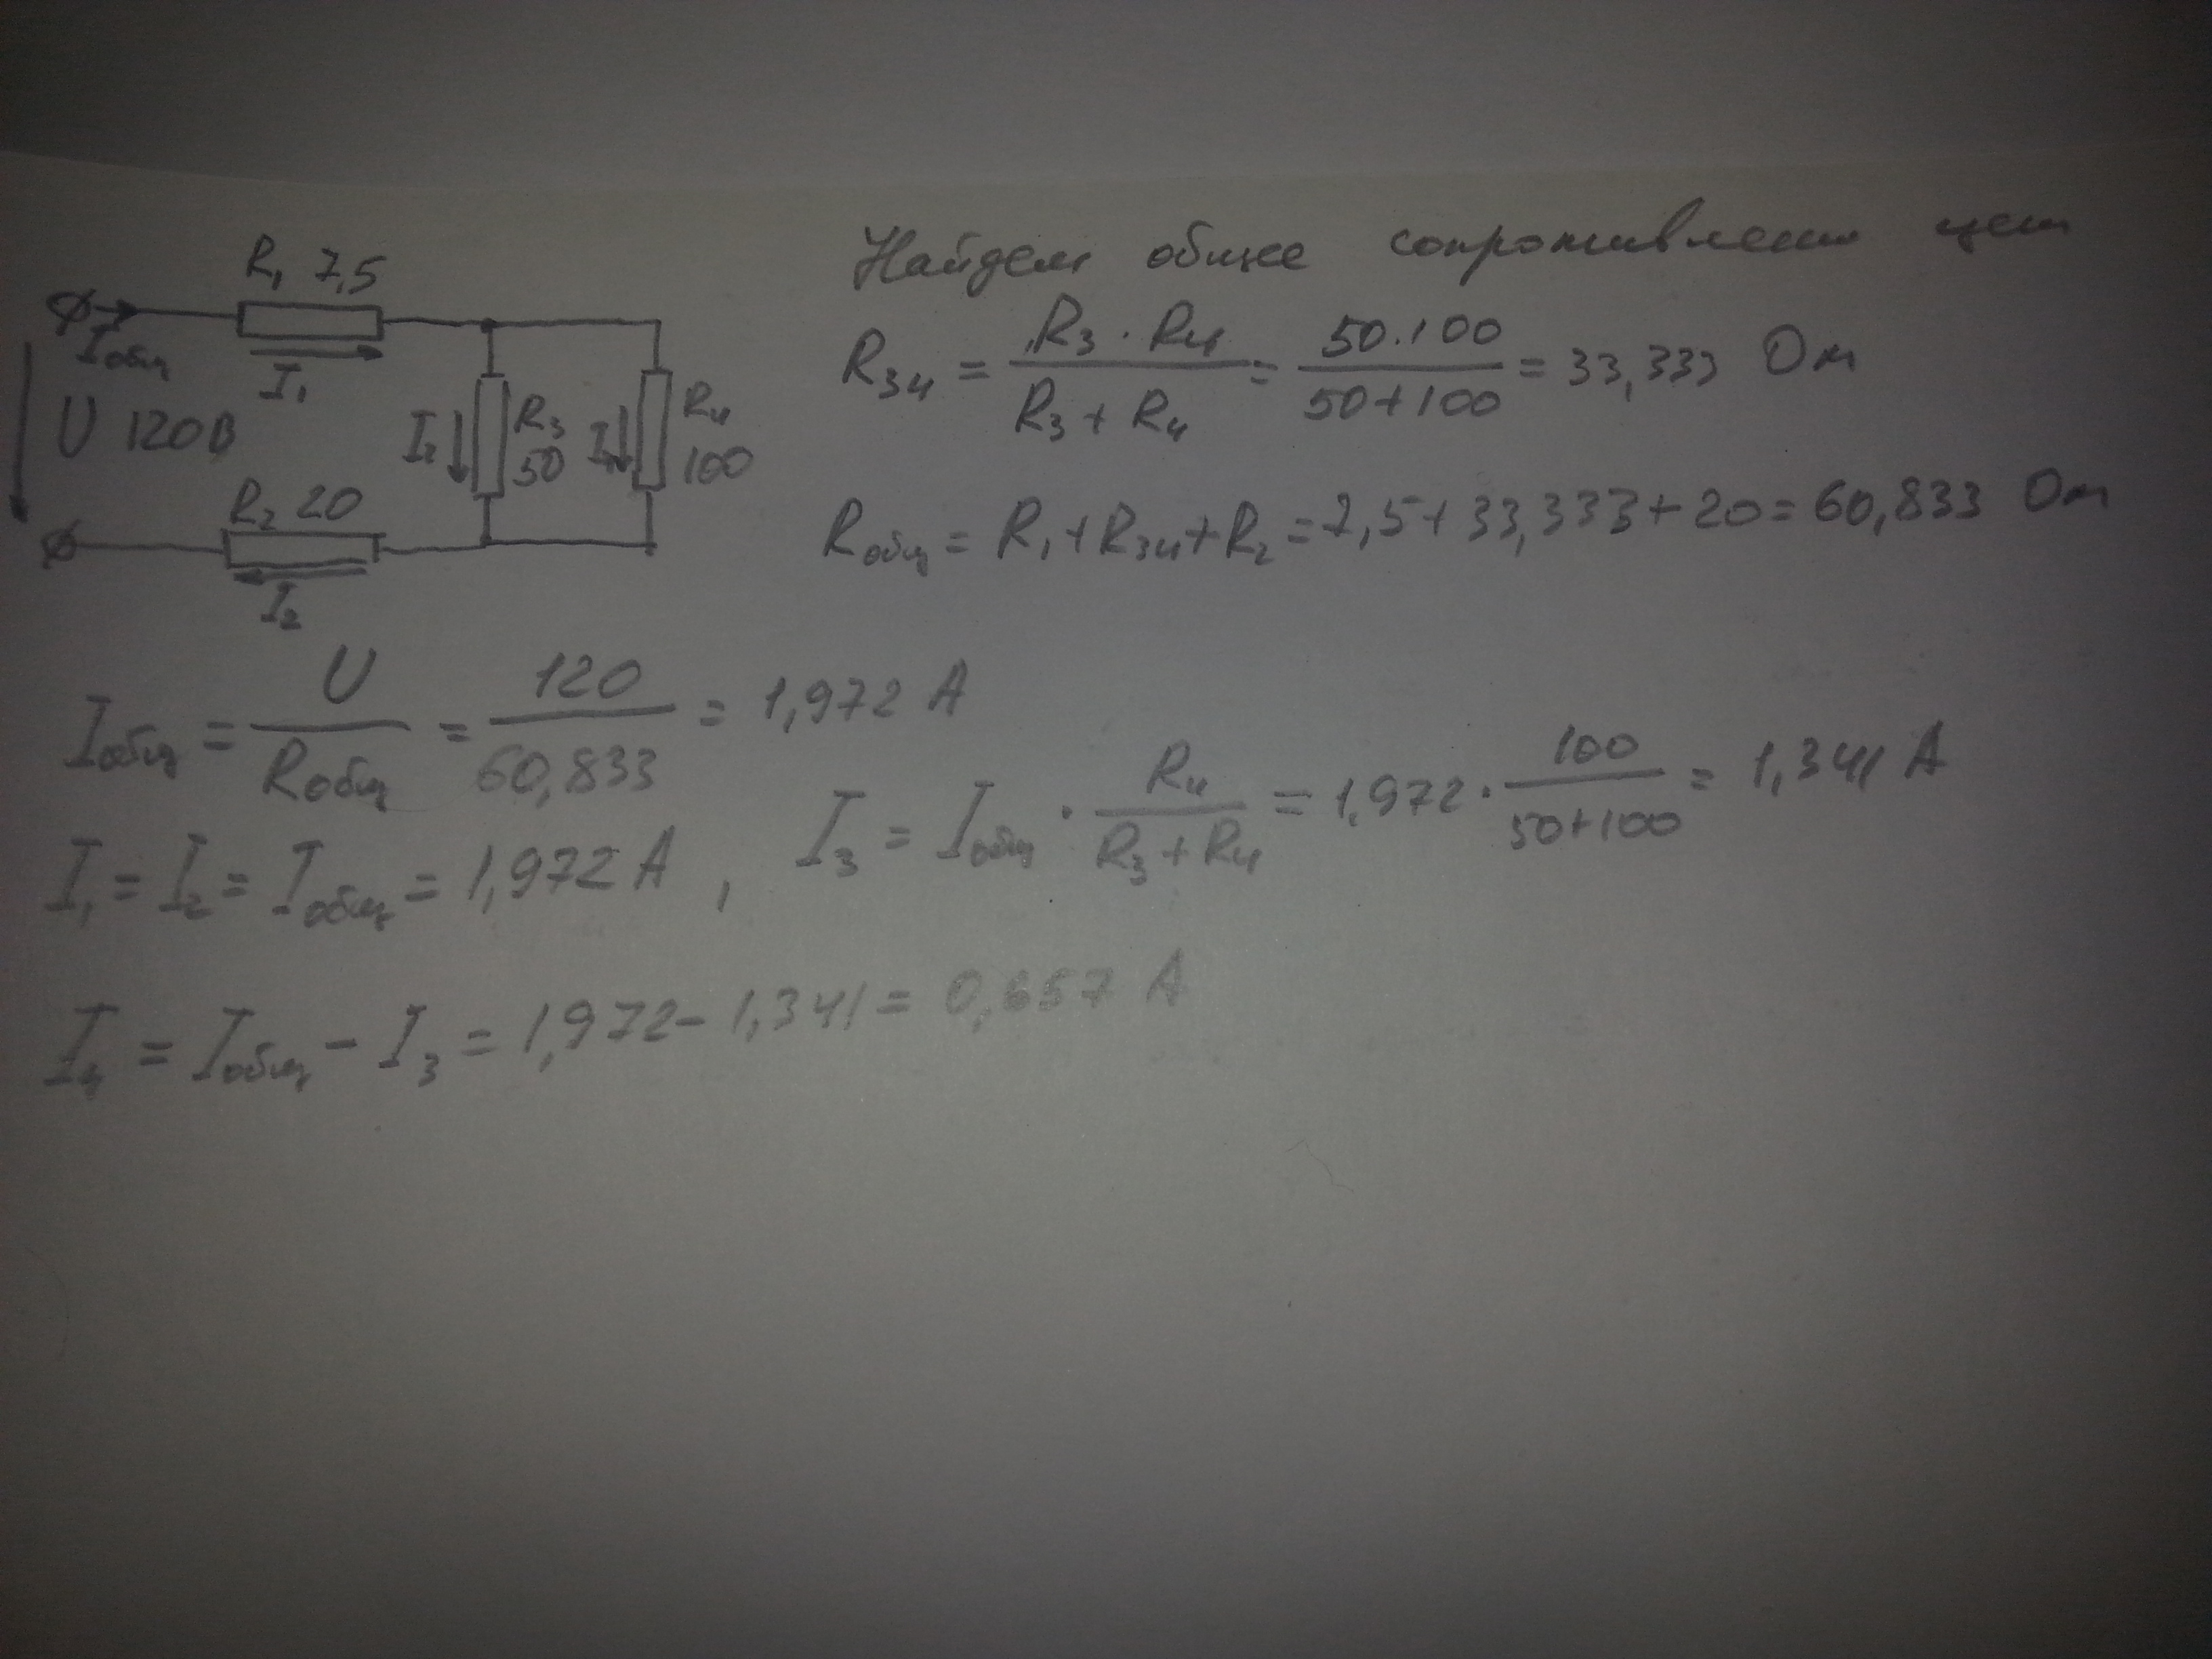 R₁ 7,5
Iобщ
I₁
U 120В
I₃
R₃
50
I₄
R₄
100
R₂ 20
I₂
Найдем общее сопротивление цепи
R₃₄ = R₃ · R₄ / R₃ + R₄ = 50 · 100 / 50+100 = 33,333 Ом
Rобщ = R₁ + R₃₄ + R₂ = 7,5 + 33,333 + 20 = 60,833 Ом
Iобщ = U / Rобщ = 120 / 60,833 = 1,972 А
I₁ = I₂ = Iобщ = 1,972 А , I₃ = Iобщ · R₄ / R₃ + R₄ = 1,972 · 100 / 50+100 = 1,341 А
I₄ = Iобщ − I₃ = 1,972 − 1,341 = 0,657 А